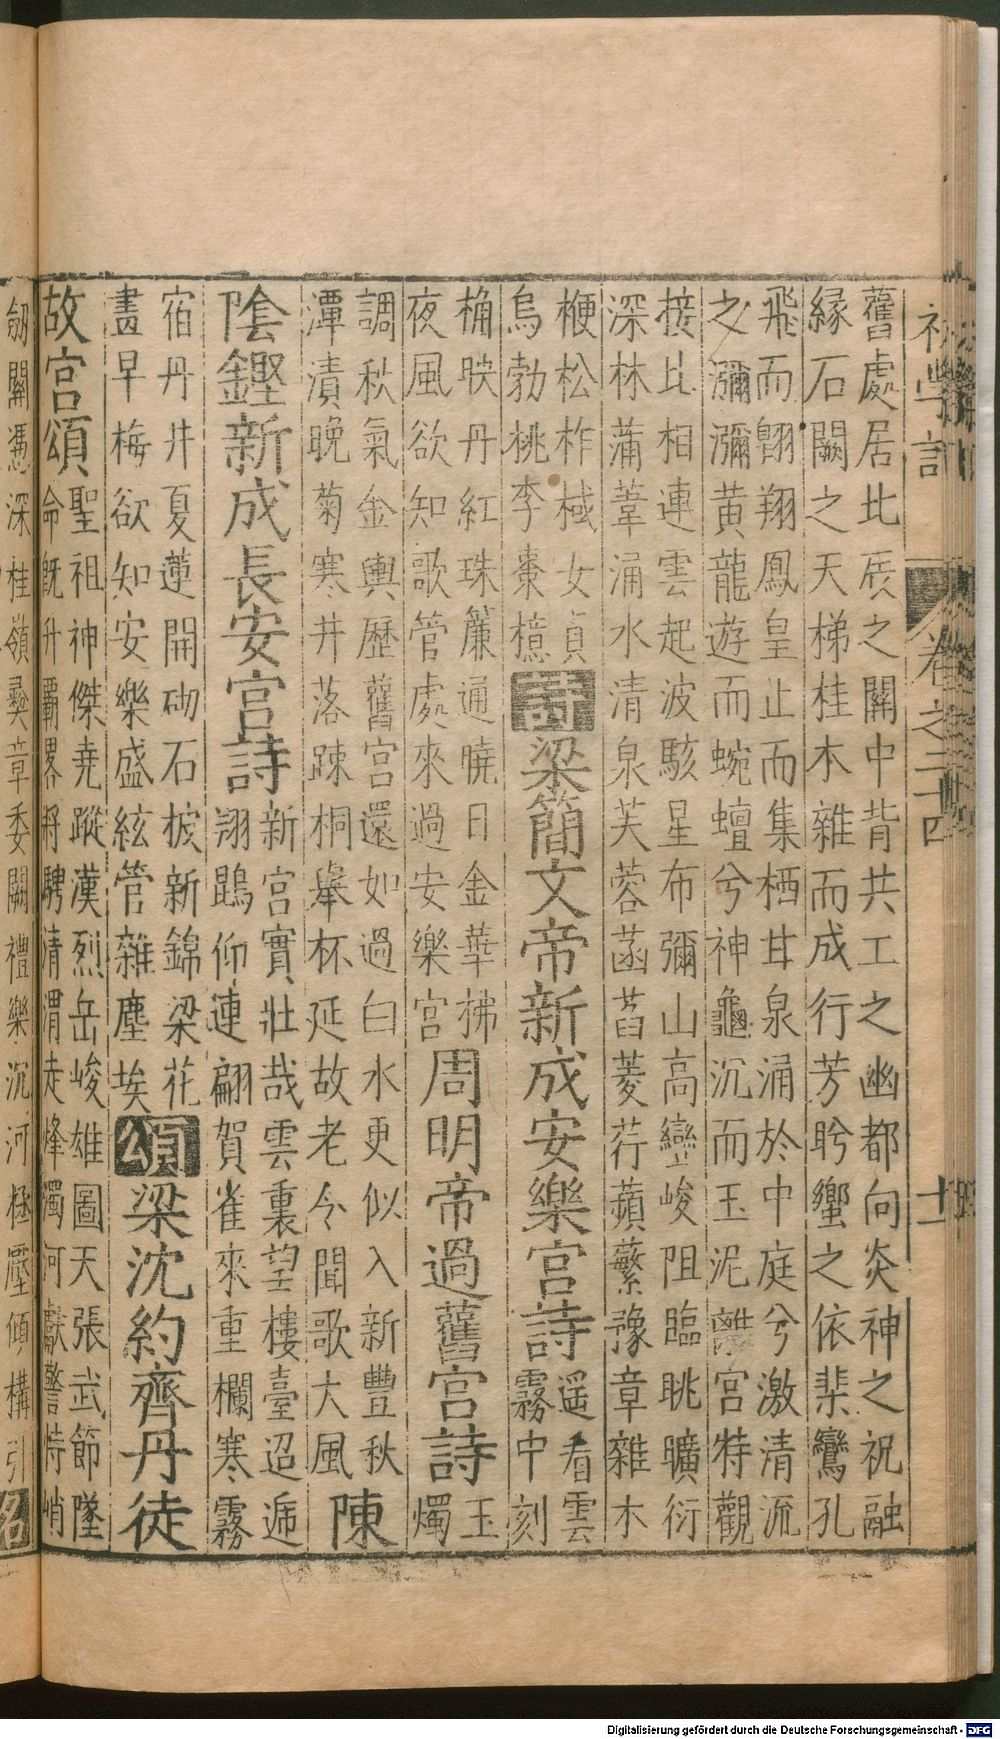 初學記 卷之二十四 十一
舊處居北辰之闕中背共工之幽都向炎神之祝融
緣石闕之天梯桂木雜而成行芳肹蠁之依斐鸞孔
飛而翺翔鳳皇止而集栖甘泉涌於中庭兮激清流
之瀰瀰黃龍遊而蜿蟺兮神龜沉而玉泥離宮特觀
接比相連雲起波駭星布彌山高巒峻阻臨眺曠衍
深林蒲葦涌水清泉芙蓉菡萏菱荇蘋蘩豫章雜木
楩松柞棫女貞
烏勃桃李棗檍
詩梁簡文帝新成安樂宮詩
遥看雲
霧中刻
桷映丹紅珠簾通曉日金華拂
夜風欲知歌管處來過安樂宮
周明帝過舊宮詩
玉
燭
調秋氣金輿歷舊宮還如過白水更似入新豐秋
潭漬晚菊寒井落疎桐舉杯延故老今聞歌大風
陳
陰鏗新成長安宮詩
新宮實壯哉雲裏望樓臺迢遞
翔鵾仰連翩賀雀來重欄寒霧
宿丹井夏蓮開砌石披新錦梁花
畫早梅欲知安樂盛絃管雜塵埃
頌梁沈約齊丹徒
故宮頌
聖祖神傑堯蹤漢烈岳峻雄圖天張武節墜
命旣升覇畧將騁清渭走烽濁河獻警恃峭
劒關憑深桂嶺彛章委闕禮樂沉河極壓傾構引
Digitalisierung gefördert durch die Deutsche Forschungsgemeinschaft - DFG